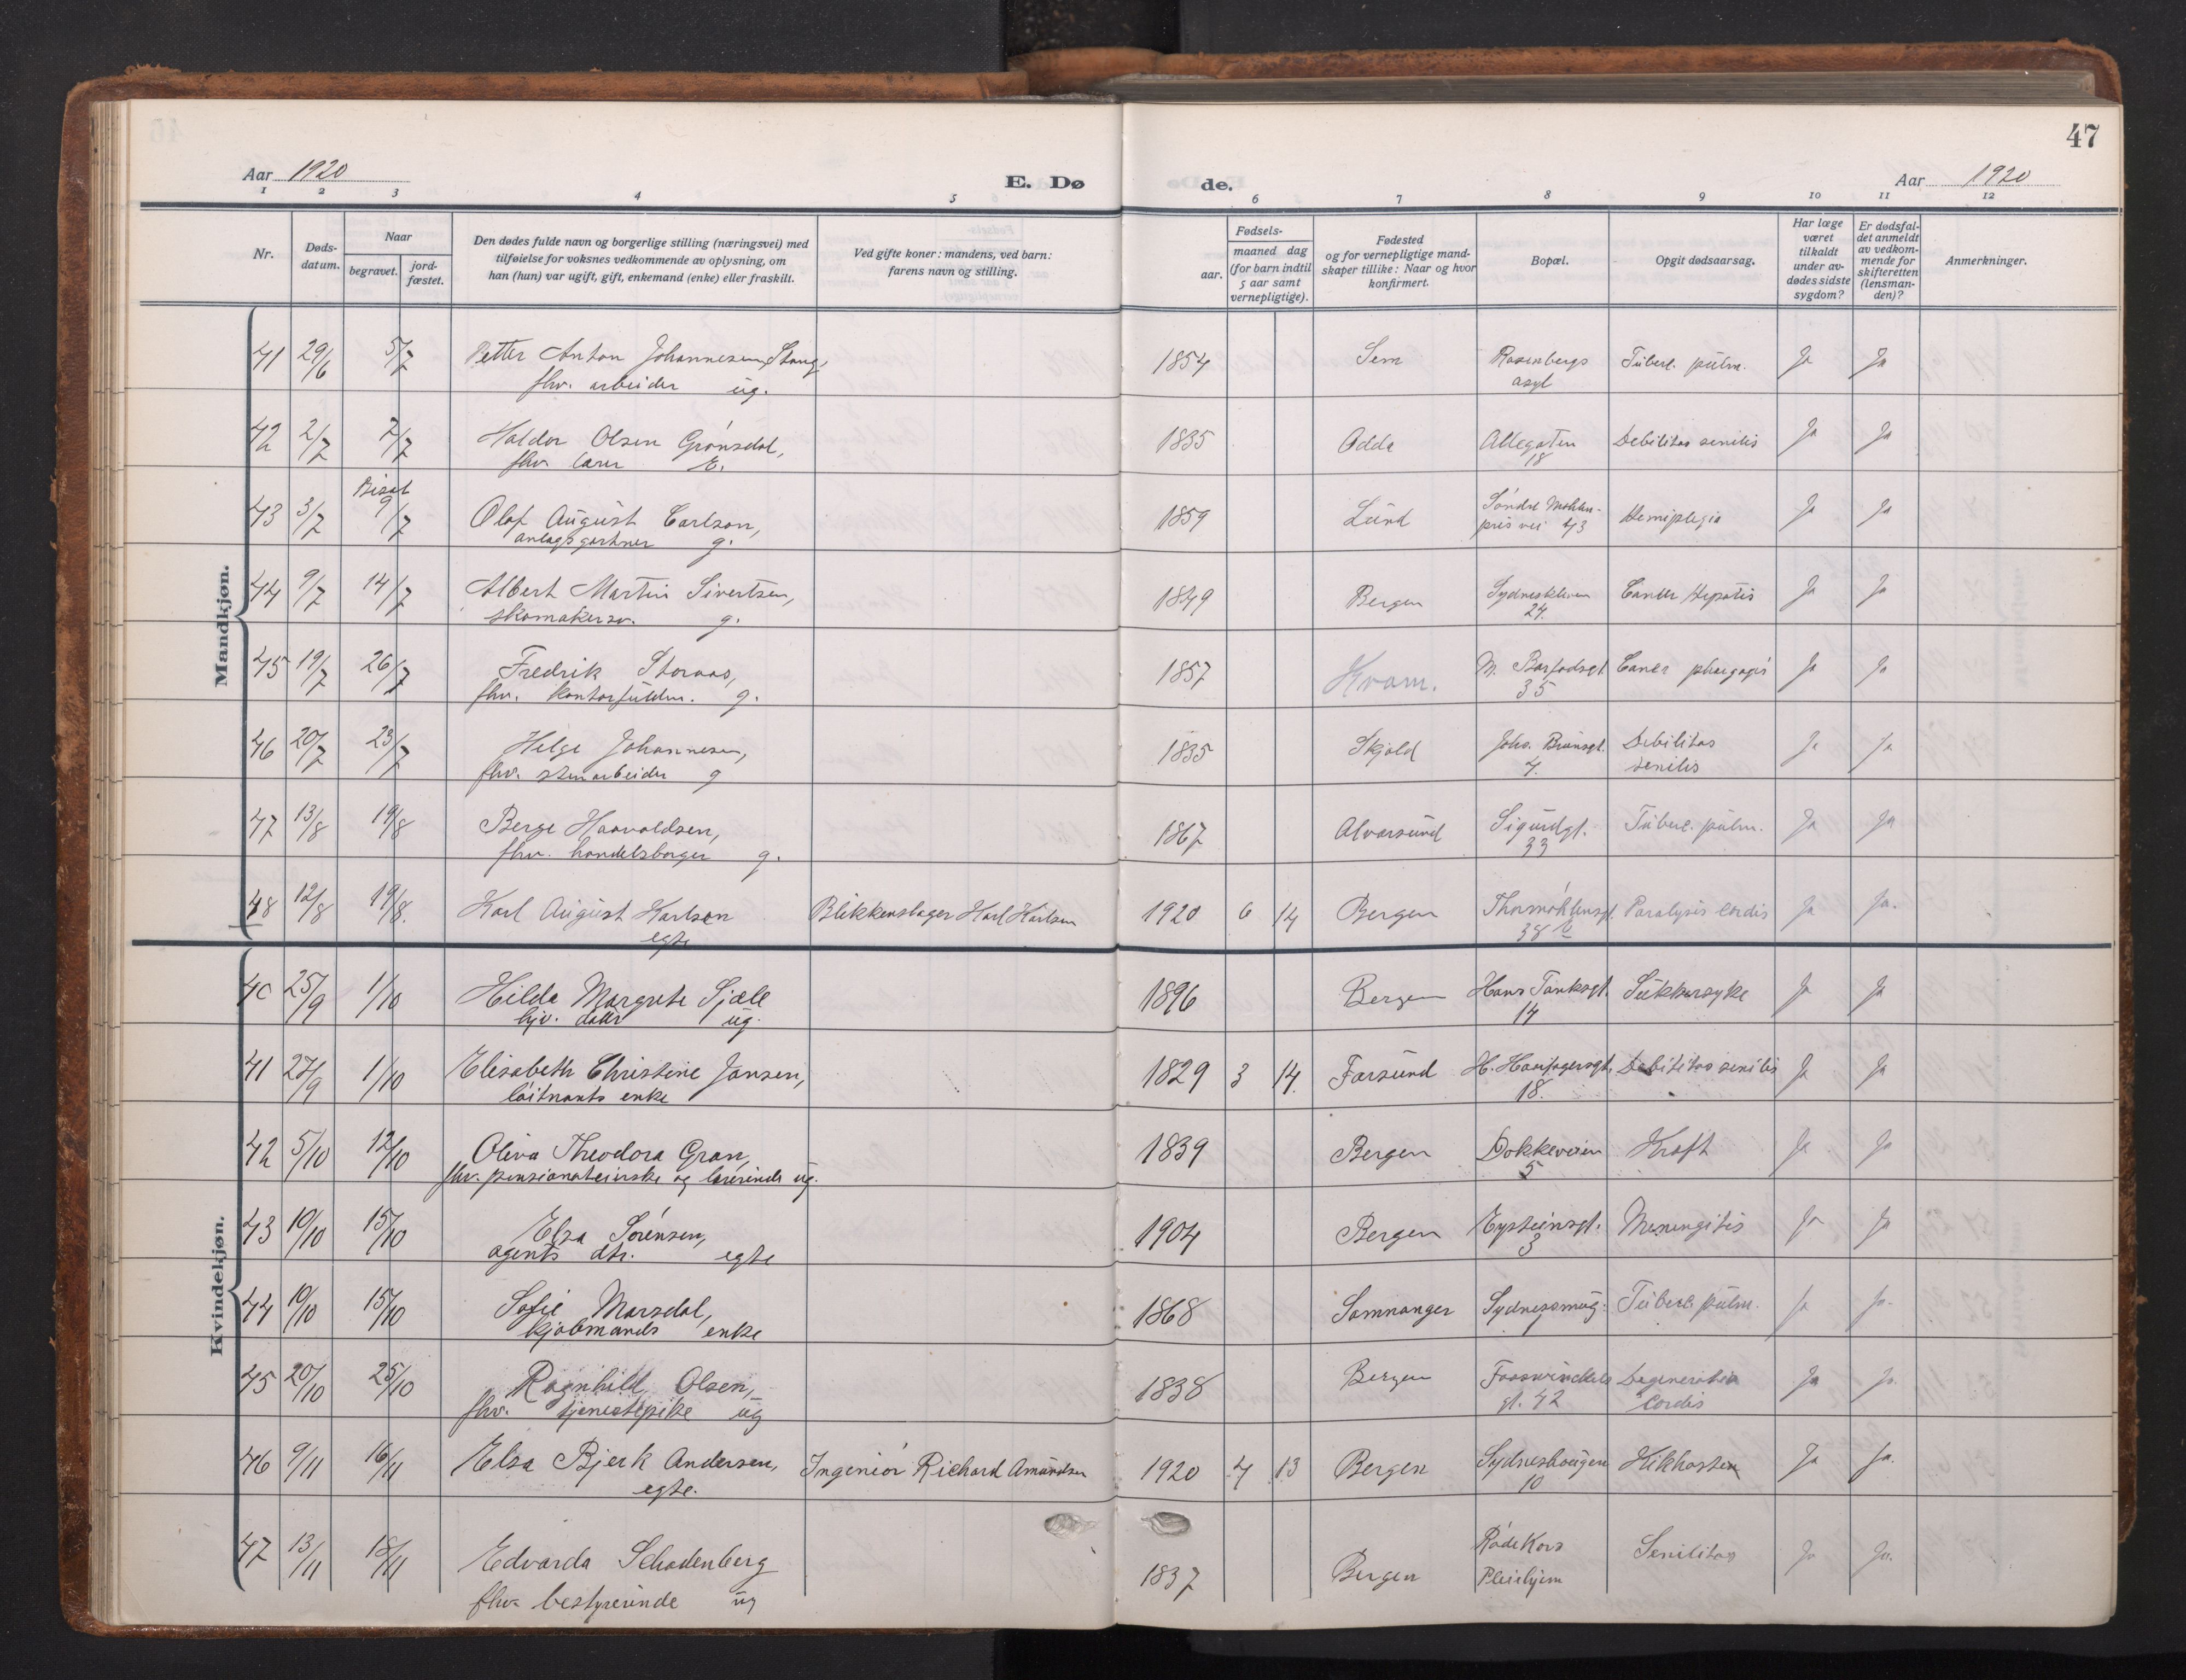 47
Aar 1920
E. Dø
de.
Aar 1920
1 2 3 4 5 6 7 8 9 10 11 12
Nr.
Døds-
datum.
Naar
begravet.
jord-
fæstet.
Den dødes fulde navn og borgerlige stilling (næringsvei) med
tilføielse for voksnes vedkommende av oplysning, om
han (hun) var ugift, gift, enkemand (enke) eller fraskilt.
Ved gifte koner: mandens, ved barn:
farens navn og stilling.
Fødsels-
aar.
maaned dag
(for barn indtil
5 aar samt
vernepligtige).
Fødested
og for vernepligtige mand-
skaper tillike: Naar og hvor
konfirmert.
Bopæl.
Opgit dødsaarsag.
Har læge
været
tilkaldt
under av-
dødes sidste
sygdom?
Er dødsfal-
det anmeldt
av vedkom-
mende for
skifteretten
(lensman-
den)?
Anmerkninger.
Mandkjøn.
41 29/6 5/7 Petter Anton Johannesen Stang, 1854 Sem Rosenbergs Tuberc. pulm. Ja Ja
fhv. arbeider ug. asyl
42 2/7 2/7 Haldor Olsen Grønsdal, 1835 Odda Allegaten Debilitas senilis Ja Ja
fhv. lærer E. 18
Bisat
43 3/7 9/7 Olaf August Carlson, 1859 Lund Søndre Mohlen- Hemiplegia Ja Ja
anlægsgartner g. prisvei 43
44 9/7 14/7 Albert Martin Sivertsen, 1849 Bergen Sydneskleven Cancer Hepatis Ja Ja
skomakersv. g. 24.
45 19/7 26/7 Fredrik Storaas, 1857 Kvam. M. Barfodsgt Cancer Ja Ja
fhv. kontorfuldm. g. 35
46 20/7 23/7 Helge Johannesen, 1835 Skjold Johs. Brunsgt. Debilitas Ja Ja
fhv. stenarbeider g senilis
47 13/8 19/8 Berge Haavaldsen, 1867 Alversund Sigurdgt. Tuberc. pulm. Ja Ja
fhv. handelsborger g. 33
48 12/8 19/8. Karl August Karlsen Blikkenslager Karl Karlsen 1920 6 14 Bergen Thormøhlensgt. Paralysis Cordis Ja Ja.
egte 38
Kvindekjøn.
40 25/9 1/10 Hilda Margrete Sjæle 1896 Bergen Hans Tanksgt. Sukkersyke Ja Ja
hjv. datter ug. 14
41 27/9 1/10 Elisabeth Christine Jansen, 1829 3 14. Farsund H. Haarfagersgt. Debilitas senilis Ja Ja
løitnants enke 18.
42 5/10 12/10 Oliva Theodora Gran, 1839 Bergen Dokkeveien Kræft Ja Ja
fhv. pensionateierske og lærerinde ug. 5
43 10/10 15/10 Elsa Sørensen, 1904 Bergen Eysteinsgt. Meningitis Ja Ja
agents dtr. egte 3
44 10/10 15/10 Sofie Marsdal, 1868 Samnanger Sydnessmug. Tuberc. pulm. Ja Ja.
kjøbmands enke 1
45 20/10 25/10 Ragnhild Olsen, 1838 Bergen Fosswinckels Degeneratio Ja Ja.
fhv. tjenestepike ug gt. 42 Cordis
46 9/11 16/11 Elsa Bjerk Andersen, Ingeniør Richard Amundsen 1920 7 13 Bergen Sydneshaugen Kikhosten Ja Ja.
egte. 10
47 13/11 18/11 Edvarda Schadenberg 1837 Bergen Røde Kors Senilitas Ja Ja.
fhv. bestyrerinde ug Pleiehjem